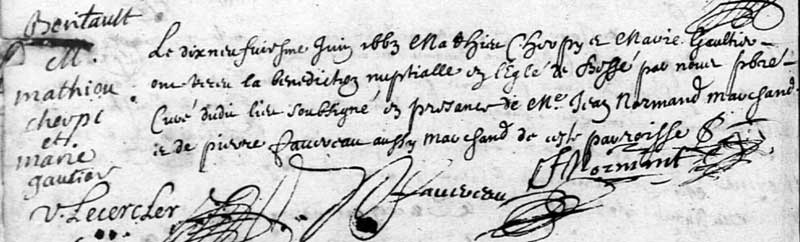 M.
mathieu
cherpi
et
marie
gautier
Le dix neufviesme Juin 1663 Mathieu Cherpy et Marie Gaultier
ont receu la benediction nuptialle en l'eglé de Bossé par nous pbre
Curé dudit lieu soubsigné, en presance de Me Jean Normand marchand
et de pierre fauveau aussy marchand de ceste parroisse
V. Lecercler
fauveau
JNormant